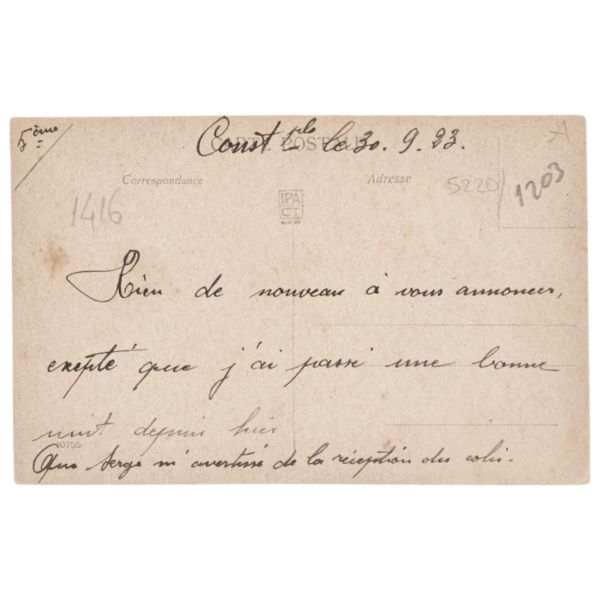 5ème
Const ple le 30.9.23.
CARTE POSTALE
Correspondance
Adresse
5220
1203
1416
IPA
CT
Rien de nouveau à vous annoncer,
exepté que j'ai passé une bonne
nuit depuis hier
10755
Que Serge m'avertisse de la réception du colis.